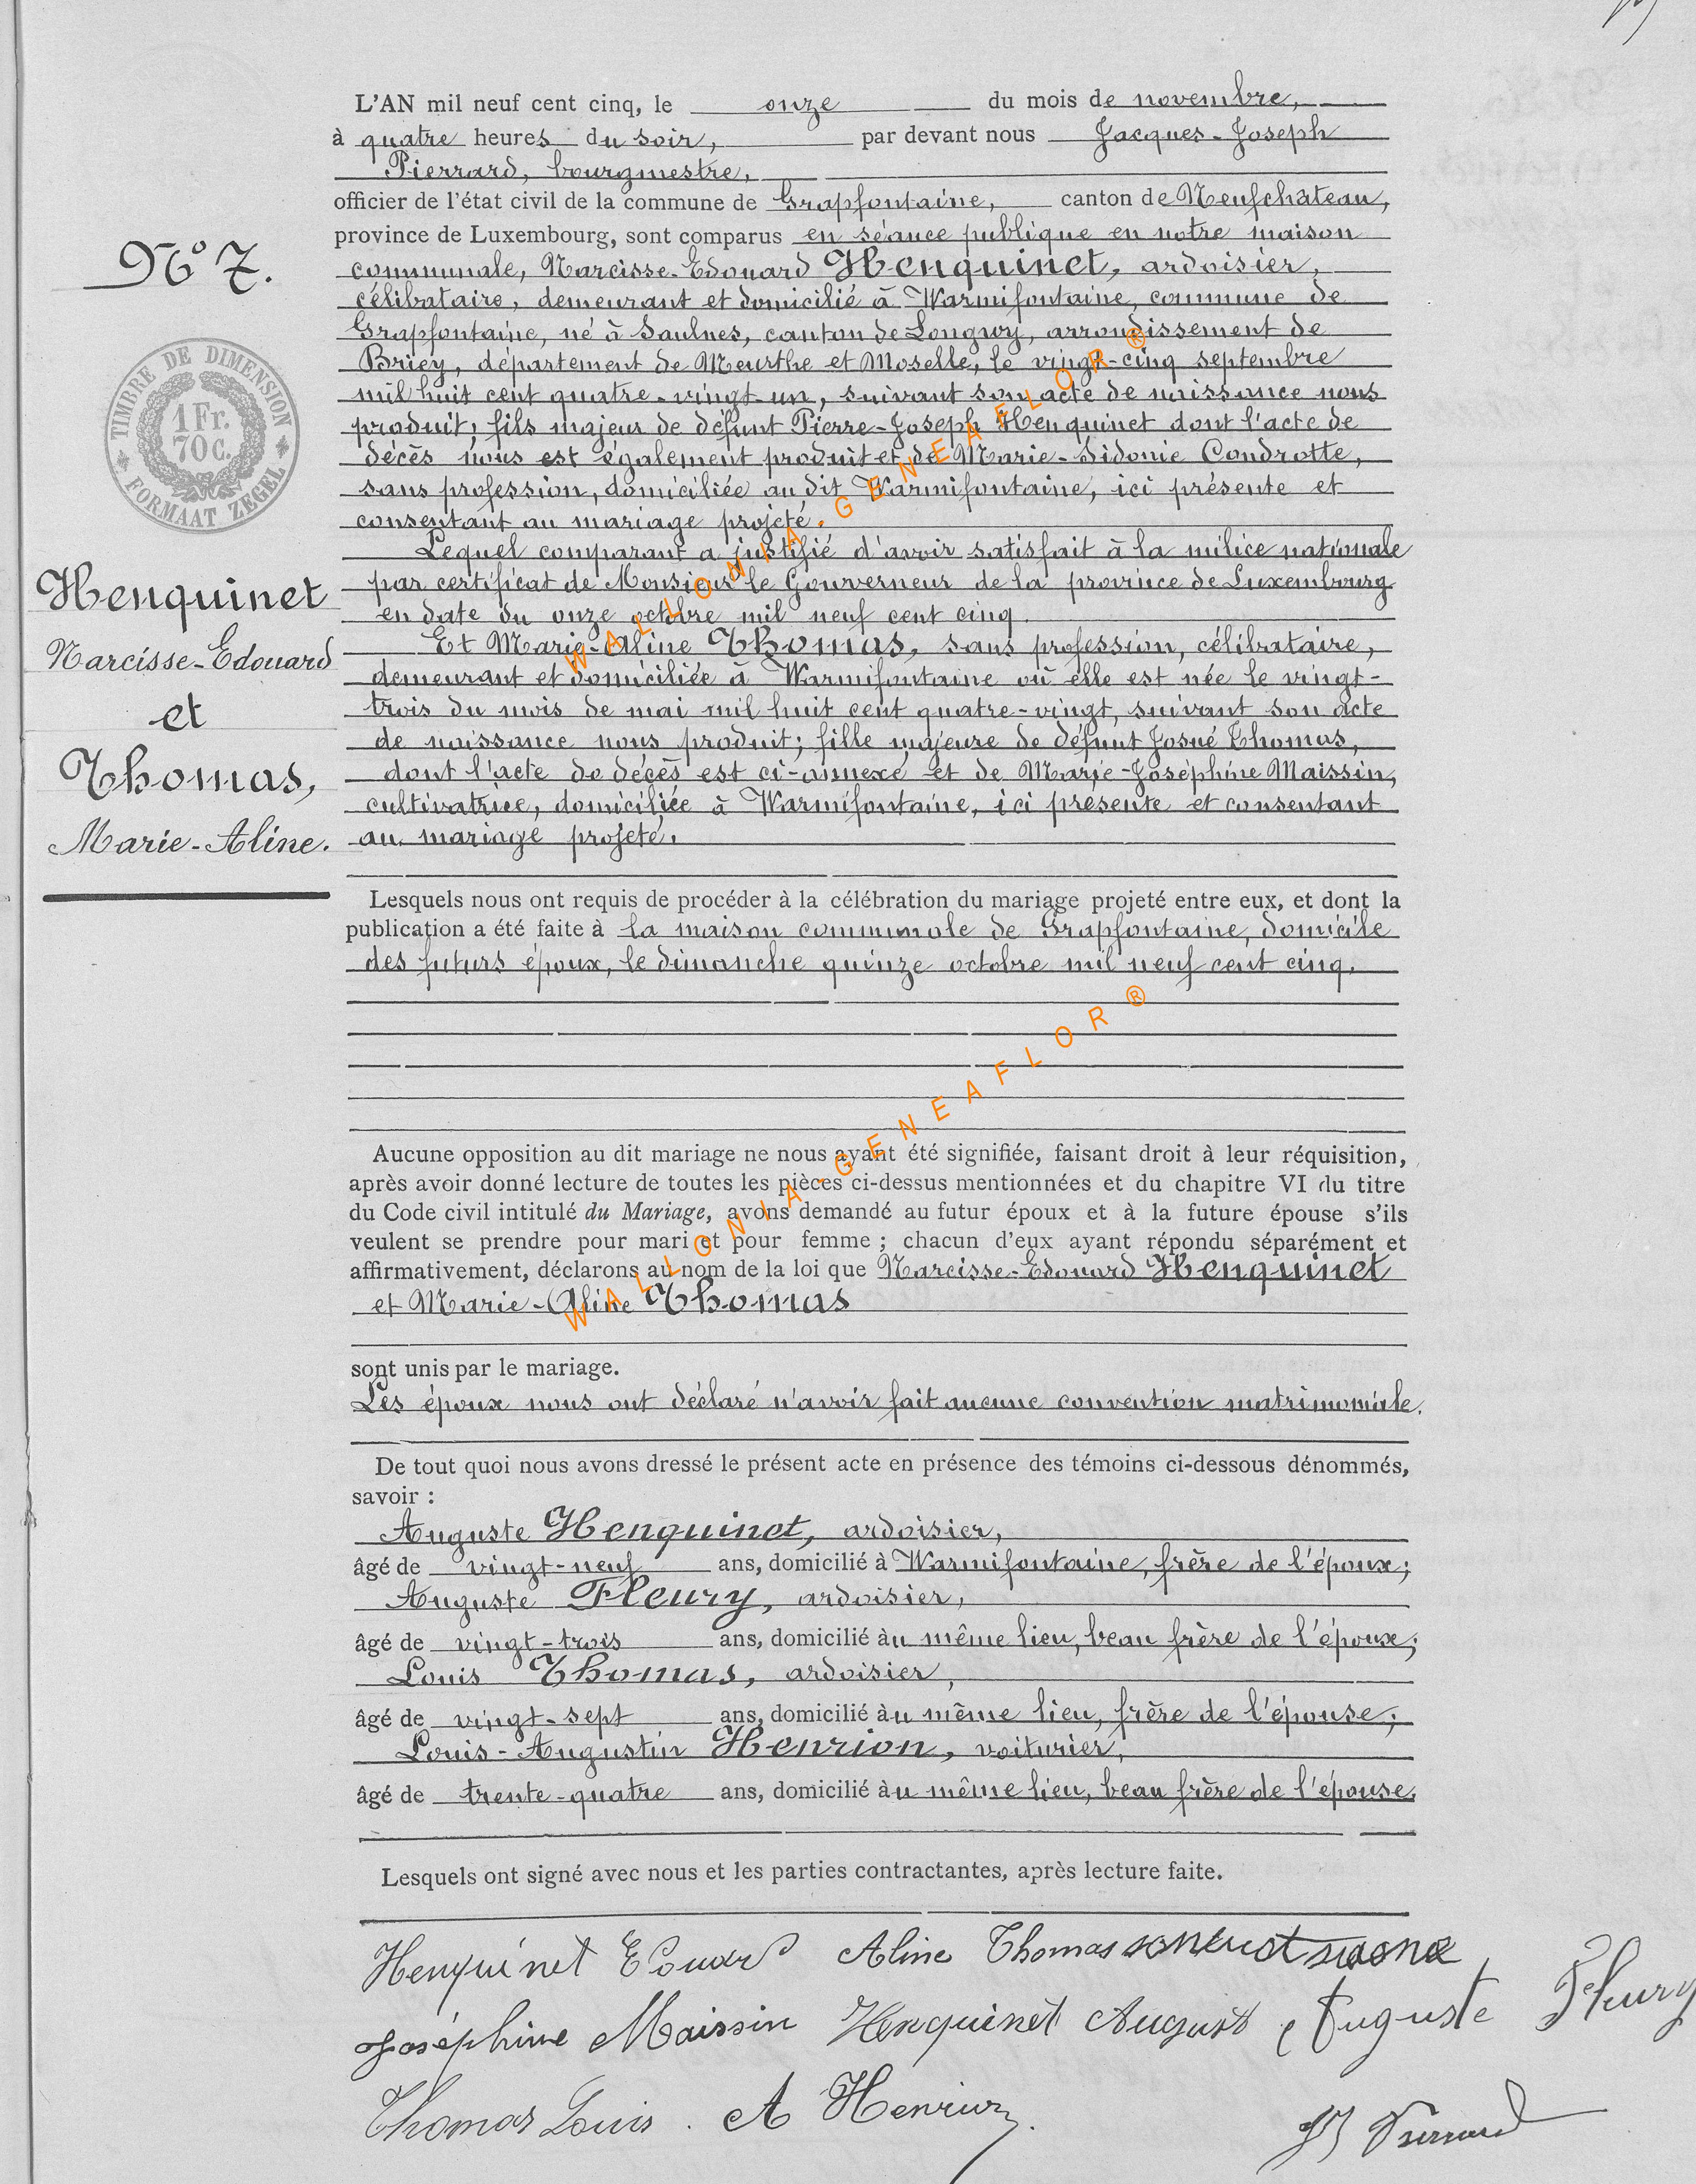 L'AN mil neuf cent cinq, le onze du mois de novembre,
à quatre heures du soir, par devant nous Jacques-Joseph
Pierrard, bourgmestre,
officier de l'état civil de la commune de Grapfontaine, canton de Neufchâteau,
province de Luxembourg, sont comparus en séance publique en notre maison
communale, Narcisse-Edouard Henquinet, ardoisier,
célibataire, demeurant et domicilié à Warmifontaine, commune de
Grapfontaine, né à Saulnes, canton de Longwy, arrondissement de
Briey, département de Meurthe et Moselle, le vingt-cinq septembre
mil huit cent quatre-vingt-un, suivant son acte de naissance nous
produit; fils majeur de défunt Pierre-Joseph Henquinet dont l'acte de
décès nous est également produit et de Marie-Sidonie Condrotte,
sans profession, domiciliée au dit Warmifontaine, ici présente et
consentant au mariage projeté.
Lequel comparant a justifié d'avoir satisfait à la milice nationale
par certificat de Monsieur le Gouverneur de la province de Luxembourg
en date du onze octobre mil neuf cent cinq.
Et Marie-Aline Thomas, sans profession, célibataire,
demeurant et domiciliée à Warmifontaine où elle est née le vingt-
trois du mois de mai mil huit cent quatre-vingt, suivant son acte
de naissance nous produit; fille majeure de défunt Josué Thomas,
dont l'acte de décès est ci-annexé et de Marie-Joséphine Maissin,
cultivatrice, domiciliée à Warmifontaine, ici présente et consentant
au mariage projeté.
N° 7.
TIMBRE DE DIMENSION
1 Fr.
70 C.
FORMAAT ZEGEL
Henquinet
Narcisse-Edouard
et
Thomas,
Marie-Aline.
Lesquels nous ont requis de procéder à la célébration du mariage projeté entre eux, et dont la
publication a été faite à la maison communale de Grapfontaine, domicile
des futurs époux, le dimanche quinze octobre mil neuf cent cinq.
Aucune opposition au dit mariage ne nous ayant été signifiée, faisant droit à leur réquisition,
après avoir donné lecture de toutes les pièces ci-dessus mentionnées et du chapitre VI du titre
du Code civil intitulé du Mariage, avons demandé au futur époux et à la future épouse s'ils
veulent se prendre pour mari et pour femme ; chacun d'eux ayant répondu séparément et
affirmativement, déclarons au nom de la loi que Narcisse-Edouard Henquinet
et Marie-Aline Thomas
sont unis par le mariage.
Les époux nous ont déclaré n'avoir fait aucune convention matrimoniale.
De tout quoi nous avons dressé le présent acte en présence des témoins ci-dessous dénommés,
savoir :
Auguste Henquinet, ardoisier,
âgé de vingt-neuf ans, domicilié à Warmifontaine, frère de l'époux;
Auguste Fleury, ardoisier,
âgé de vingt-trois ans, domicilié au même lieu, beau frère de l'époux;
Louis Thomas, ardoisier,
âgé de vingt-sept ans, domicilié au même lieu, frère de l'épouse;
Louis-Augustin Henrion, voiturier,
âgé de trente-quatre ans, domicilié au même lieu, beau frère de l'épouse.
Lesquels ont signé avec nous et les parties contractantes, après lecture faite.
Henquinet Edouard Aline Thomas
Joséphine Maissin Henquinet August Auguste Fleury
Thomas Louis. A Henrion
JJ Pierrard
WALLONIA-GENEAFLOR®
WALLONIA-GENEAFLOR®